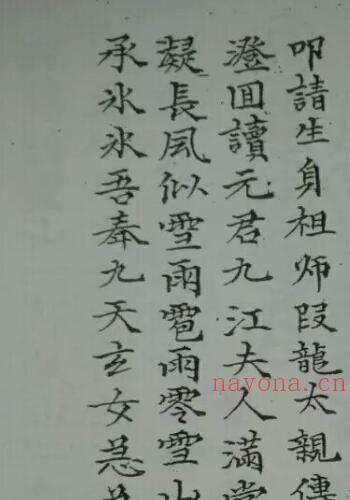 叩請生身祖师段龍太親傳
澄囬讀元君九江夫人滿堂
凝長風似雪雨雹雨零雪山
承氷氷吾奉九天玄女急急
nayona.cn